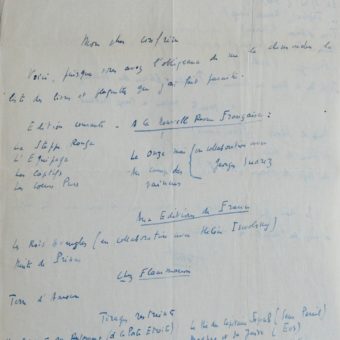 Mon cher confrère
Voici, puisque vous avez l'obligeance de me la demander, la
liste des livres et plaquettes que j'ai fait paraître.
Edition courante - A la Nouvelle Revue Française :
La Steppe Rouge
L'Equipage
Les Captifs
Les Coeurs Purs
Le Onze mai (en collaboration avec
Georges Suarez
Au camp des
vaincus
Aux Editions de France
Les Rois Aveugles (en collaboration avec Hélène Iswolsky)
Nuits de Princes
Chez Flammarion
Terre d'Amour
Tirages restreints
(à la Porte Etroite)
(Sans Pareil)